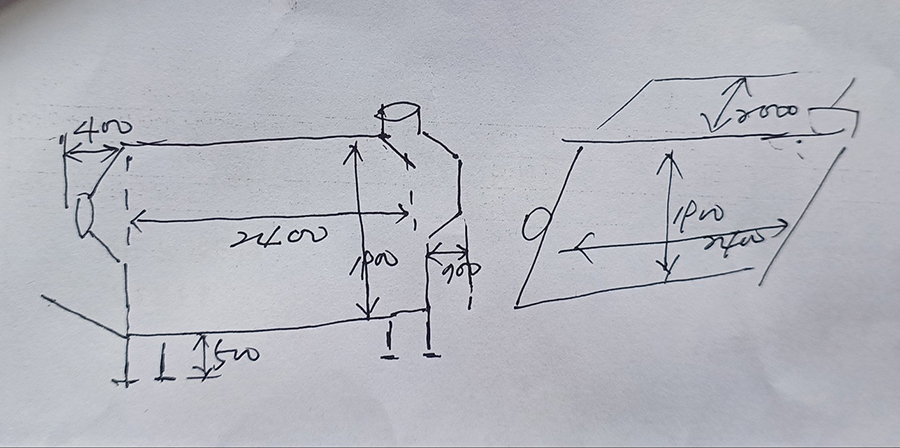 400
2400
1900
900
500
2000
1900
2400